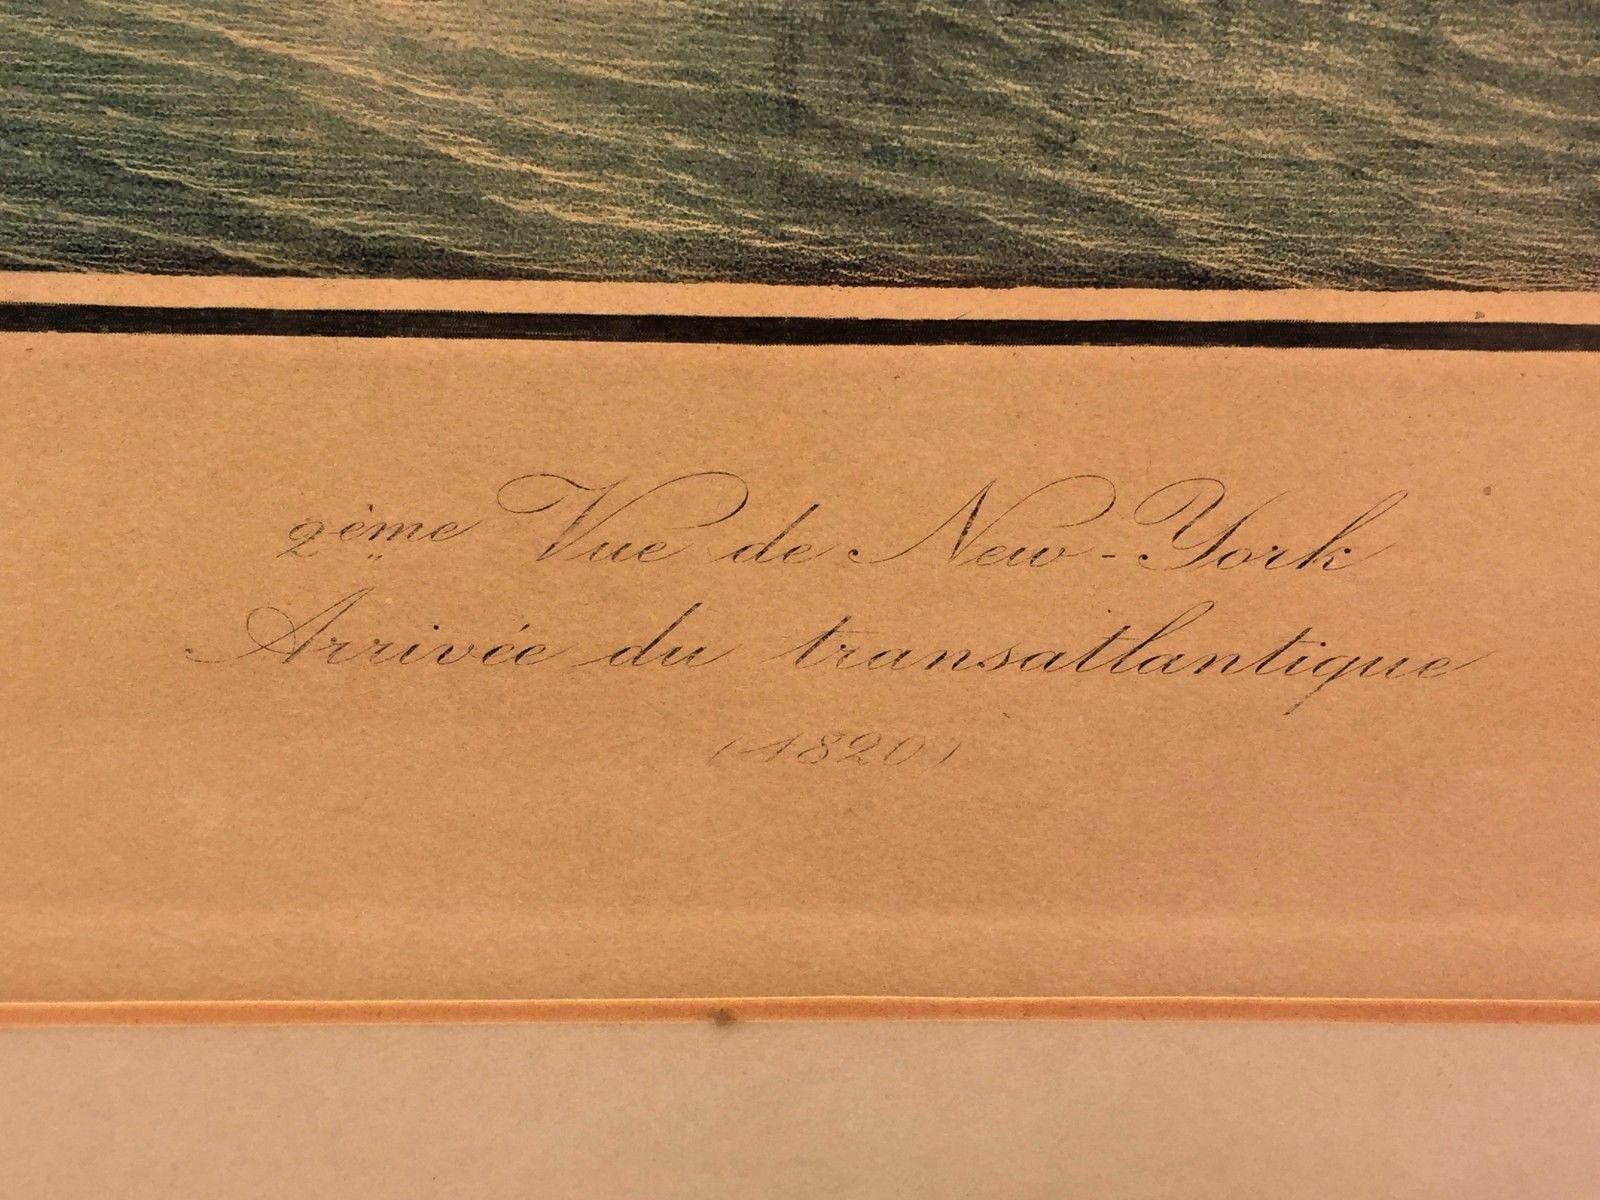 2ème Vue de New-York
Arrivée du transatlantique
(1820)